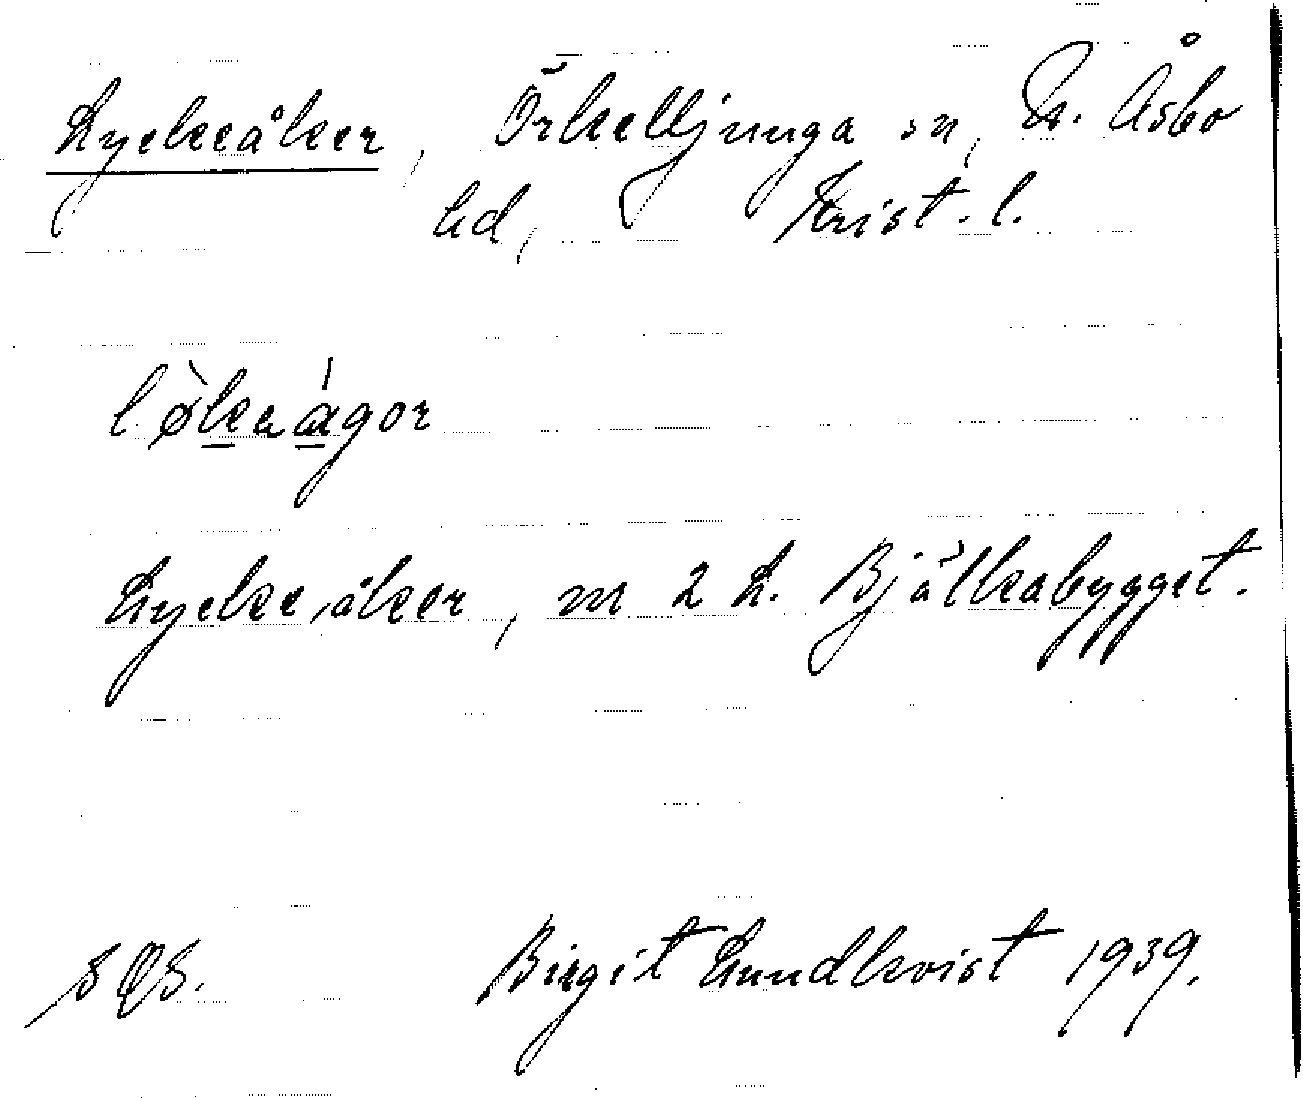 Lyckeåker, Örkelljunga sn, N. Åsbo
hd, Krist. l.
Lyckeåker, m 2 L. Bjälkabygget.
SOS. Birgit Lundkvist 1939.